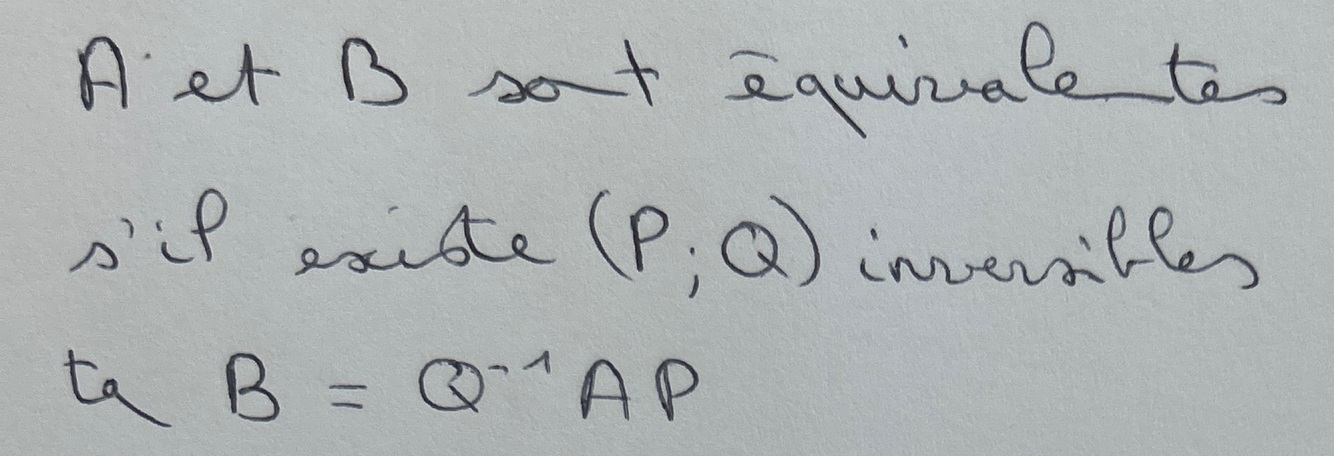 A et B sont équivalentes
s'il existe (P ; Q) inversibles
tq B = Q⁻¹ A P